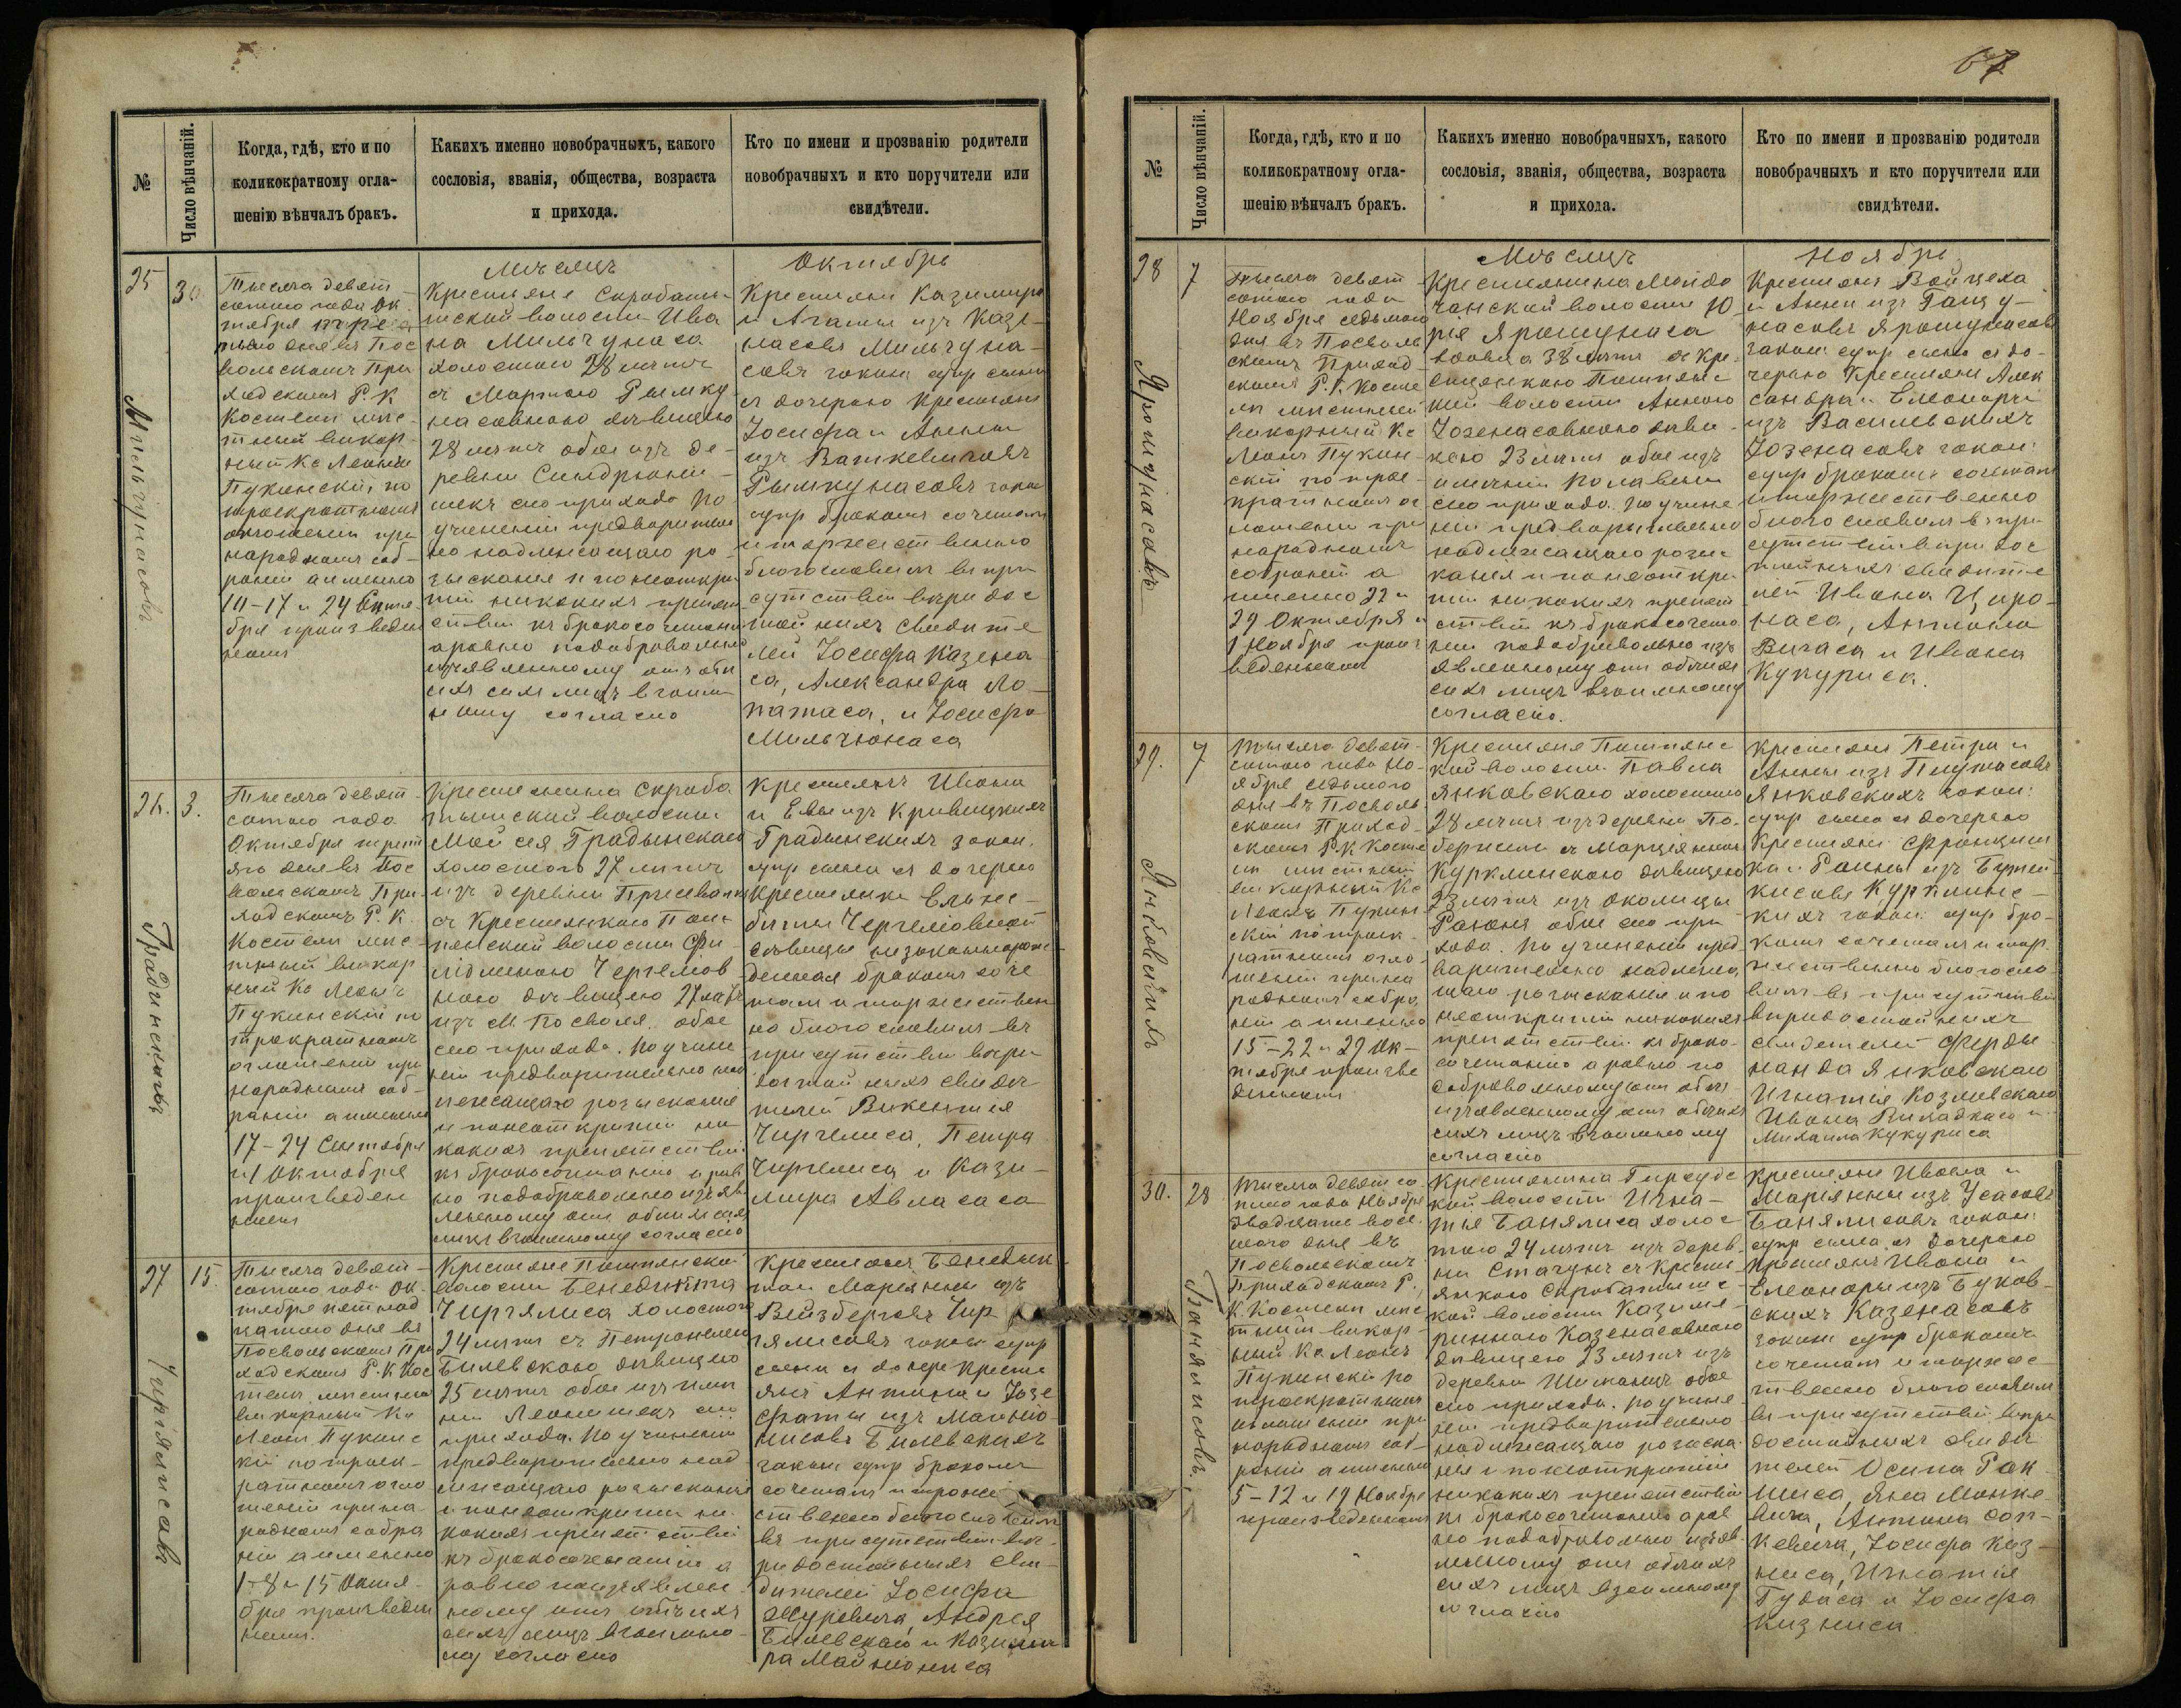 67
№
Число вѣнчаній.
Когда, гдѣ, кто и по
коликократному огла-
шенію вѣнчалъ бракъ.
Какихъ именно новобрачныхъ, какого
сословія, званія, общества, возраста
и прихода.
Кто по имени и прозванію родители
новобрачныхъ и кто поручители или
свидѣтели.
Мѣсяцъ
Октябрь
25
30
Мильчунасовъ
Тысяча девят-
сотаго года Ок
тября
дня въ Пос
вольскомъ При
ходскомъ Р. К
Костели мѣс-
тный викар
ный Кс Леонъ
Пукинскій, по
троекратномъ
оглошеніи при
народномъ соб-
раніи а именно
10-17 и 24 Сентя-
бря произведен
номъ
Крестьяне Скробаты-
шской волости Ива
на Мильчунаса
холостого 28 летъ
съ Мартою Рымку
насовною дѣвицею
28 летъ обое изъ де-
ревни
сего прихода По
учиненіи предварител
но надлежащаго ро-
зысканія и по неоткры
тіи никакихъ препят
ствій къ бракосочетанію
аровно подобровольно
изъявленному отъ оби
ихъ сихъ лицъ взаим
ному согласію
Крестьяни Казимира
и Агаты изъ Казе-
насовъ Мильчуна-
совъ закон супр сына
съ дочерью Крестьянъ
Іосифа и Анны
изъ Вашкевичовъ
Рымкунасовъ закон
супр бракомъ сочеталъ
и торжественно
благословилъ въ при
сутствіи вѣридос
тойныхъ свидите
лей Іосифа Казена
са, Александра Ло-
патаса, и Іосифа
Мильчюнаса
26.
3.
Градинскихъ
Тысяча девят-
сотаго года
Октября трет
яго дня въ Пос
вольскомъ При-
ходскомъ Р. К.
Костели мѣс-
тный викар
ный Кс Леонъ
Пукинскій по
трократномъ
оглошеніи при
народномъ соб-
раніи а именно
17-24 Сентября
и 1 Октября
произведен
номъ
Крестьянина Скроба
тышской волости
Мойсея Градынскаго
холостого 27 летъ
изъ деревни
съ Крестьянкою Пом-
пянской волости
Чергелов
ною дѣвицею 27 летъ
изъ М. Посволя. обое
сего прихода. По учине
ніи предварительно над
лежащаго розысканія
и понеоткрытіи ни
какихъ препятствій
къ бракосочетанію а рав
но подобровольно изъяв
ленному отъ обоихъ сихъ
лицъ взаимному согласію
Крестьянъ Ивана
и Евы изъ Кривицкихъ
Градинскихъ закон.
супр сына съ дочерью
Крестьянки
Чергеловной
дѣвицы незаконнорож-
денная бракомъ соче
талъ и торжествен
но благословилъ въ
присутствіи вѣри
достойныхъ свидѣ
телей Викентія
Чиргелиса, Петра
Чиргелиса и Кази-
мира Авласаса
27
15.
Чиргялисовъ
Тысяча девят-
сотаго года Ок
тября пятнад
цатаго дня въ
Посвольскомъ При
ходскомъ Р. К Кос
тели мѣстный
викарный Кс
Леонъ Пукинс
кій потроек-
ратномъ огло
шеніи прина
родномъ собра
ніи а именно
1-8 и 15 Октя-
бря произведен
номъ.
Крестьяне Помпянской
волости Бенедикта
Чиргялиса холостого
24 летъ съ Петронелею
Билевскою дѣвицею
25 летъ обое изъ име
ни Леонишекъ сего
прихода. По учиненіи
предварительно над
лежащаго розысканія
и понеоткрытіи ни
какихъ препятствій
къ бракосочетанію а
равно поизъявлен
ному отъ обѣихъ
сихъ лицъ взаимно-
му согласію
Крестьянъ Бенедик
та и Маріянны изъ
Вейзберговъ Чир
гялисовъ закон супр
сына съ дочерю Кресть
янъ Антона и Юзе
фаты изъ Майню-
нисовъ Билевскихъ
закон супр бракомъ
сочеталъ и торже
ственно благословилъ
въ присутствіи вѣ-
ридостойныхъ сви-
дителей Іосифа
Шуревича, Андрея
Билевскаго и Казими
ра Майнюниса
№
Число вѣнчаній.
Когда, гдѣ, кто и по
коликократному огла-
шенію вѣнчалъ бракъ.
Какихъ именно новобрачныхъ, какого
сословія, званія, общества, возраста
и прихода.
Кто по имени и прозванію родители
новобрачныхъ и кто поручители или
свидѣтели.
Мѣсяцъ
Ноябрь
28
7
Ярошунасовъ
Тысяча девят
сотаго года
Ноября седьмого
дня въ Посволь
скомъ Приход
скомъ Р. К. Косте
ли мѣстный
викарный Кс
Леонъ Пукин-
скій потрое-
кратномъ ог
лошеніи при
народномъ
собраніи а
именно 22 и
29 Октября и
1 Ноября произ
веденномъ
Крестьянина
волости Ю
рія Ярошунаса
вдовца 38 летъ съ Кре-
стьянкою Помпянс
кой волости Анною
Юзенасовною дѣви-
цею 23 летъ обое изъ
имѣнія
сего прихода. По учине
ніи предварительно
надлежащаго розыс
канія и понеоткры
тіи никакихъ препят
ствій къ бракосочета
нію подобровольно изъ
явленному отъ обоихъ
сихъ лицъ взаимному
согласію.
Крестьянъ Войцеха
и Анны изъ
Ярошунасовъ
закон супр сына съ до-
черью Крестьянъ Алек
сандра и Елеоноры
изъ Василевскихъ
Юзенасовъ закон:
супр бракомъ сочеталъ
и торжественно
благословилъ въ при
сутствіи вѣри дос
тойныхъ свидите
лей Ивана Цапо-
наса, Антона
Вичаса и Ивана
Кукуриса.
29.
7
Янковскихъ
Тысяча девят-
сотаго года Но-
ября седьмого
дня въ Посволь-
скомъ Приход-
скомъ Р.К Косте
ли мѣстный
викарный Кс
Леонъ Пукин-
скій потроек-
ратномъ огло-
шеніи прина
родномъ собра
ніи а именно
15-22 и 29 Ок-
тября произве
денномъ
Крестьяня Помпянс
кой волости Павла
Янковскаго холостого
28 летъ изъ деревни
съ Марціянною
Курклинскою дѣвицею
23 летъ изъ околицы
обое сего при
хода. По учиненіи пред
варительно надлежа
щаго розысканія и по
неоткрытіи никакихъ
препятствій къ брако-
сочетанію а равно по
добровольному отъ обоих
изъявленному отъ обоихъ
сихъ лицъ взаимному
согласію
Крестьянъ Петра и
Анны изъ
Янковскихъ закон:
супр сына съ дочерью
Крестьянъ Францыш
ка и
Курклинс-
кихъ закон: супр бра-
комъ сочеталъ и тор
жественно благосло
вилъ въ присутствіи
вѣридостойныхъ
свидетелей Ферды
нанда Янковскаго
Игнатія Козловскаго
Ивана
Михаила Кукуриса
30.
28
Банялисовъ.
Тысяча девятсо
таго года Ноября
двадцать вось
маго дня въ
Посвольскомъ
Приходскомъ Р.
К Костели мѣс
тный викар-
ный Кс Леонъ
Пукинскій по
троекратномъ
оглашеніи при
народномъ соб-
раніи а именно
5-12 и 19 Ноября
произведенномъ
Крестьянина Гирсудс
кой волости Игна-
тія Банялиса холос
таго 24 летъ изъ дерев-
ни съ Кресть-
янкою Скробатышс
кой волости Казими-
рянною Казенасовною
дѣвицею 23 летъ изъ
деревни обое
сего прихода. По учине-
ніи предварительно
надлежащаго розыска
нія и понеоткрытіи
никакихъ препятствій
къ бракосочетанію а рав
но подобровольно изъяв
ленному отъ обоихъ
сихъ лицъ взаимному
согласію
Крестьянъ Ивана и
Маріянны изъ Усасовъ
Банялисовъ закон:
супр сына съ дочерью
Крестьянъ Ивана и
Елеоноры изъ Буков-
скихъ Казенасовъ
закон супр бракомъ
сочеталъ и торжес-
твенно благословилъ
въ присутствіи вѣри
достойныхъ свидѣ
телей Осипа
Яна Монке
вича, Антона Сап-
кевича, Іосифа Каз-
ниса, Игнатія
Гудаса и Іосифа
Кизниса